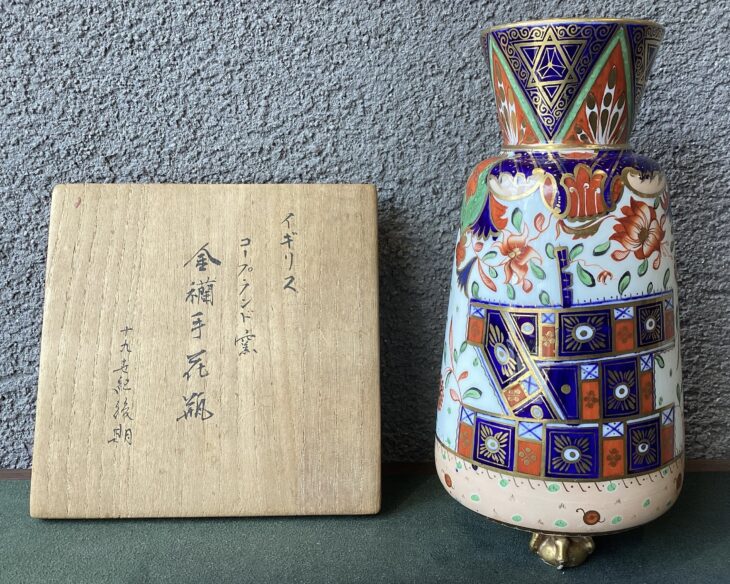 イギリス
コープランド窯
金襴手花瓶
十九世紀後期